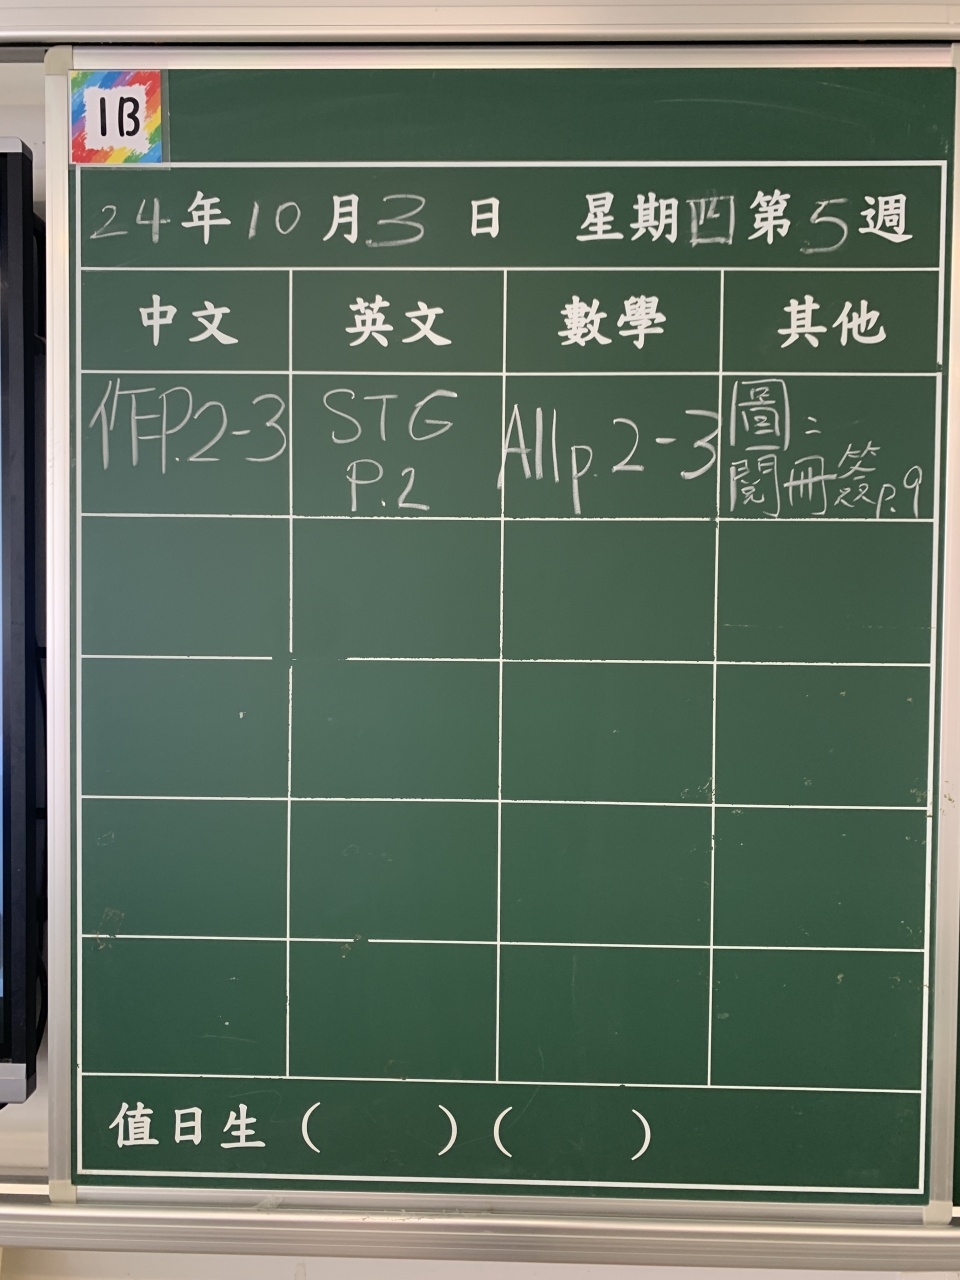 1B
24年10月3日 星期四第5週
中文 英文 數學 其他
作P.2-3
STG
P.2
All p.2-3
圖:
閱冊簽p.9
值日生( )( )